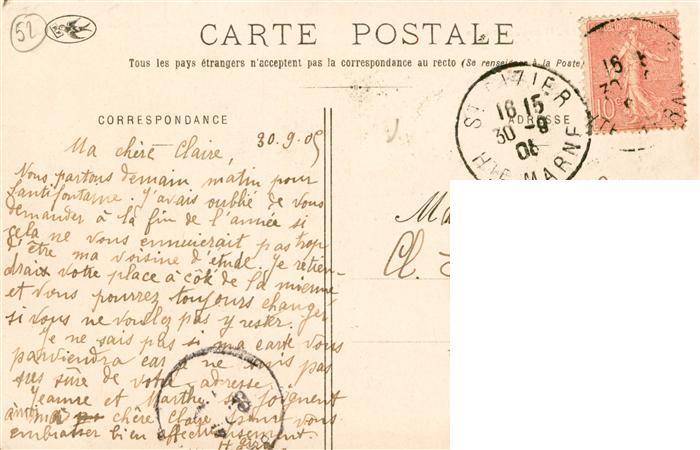 52
CARTE POSTALE
Tous les pays étrangers n'acceptent pas la correspondance au recto (Se renseigner à la Poste)
CORRESPONDANCE
ADRESSE
ST DIZIER
16 15
30 - 9
05
HTE MARNE
16
30
10
30.9.05
Ma chère Claire,
Nous partons demain matin pour
Santifontaine. J'avais oublié de vous
demander à la fin de l'année si
cela ne vous ennuierait pas trop
d'être ma voisine d'étude. Je retien-
draix votre place à côté de la mienne
et vous pourrez toujours changer
si vous ne voulez pas y rester.
Je ne sais pas si ma carte vous
parviendra car je ne suis pas
très sûre de votre adresse.
Jeanne et Marthe se joignent
à moi chère Claire pour vous
embrasser bien affectueusement.
Ma
Cl.